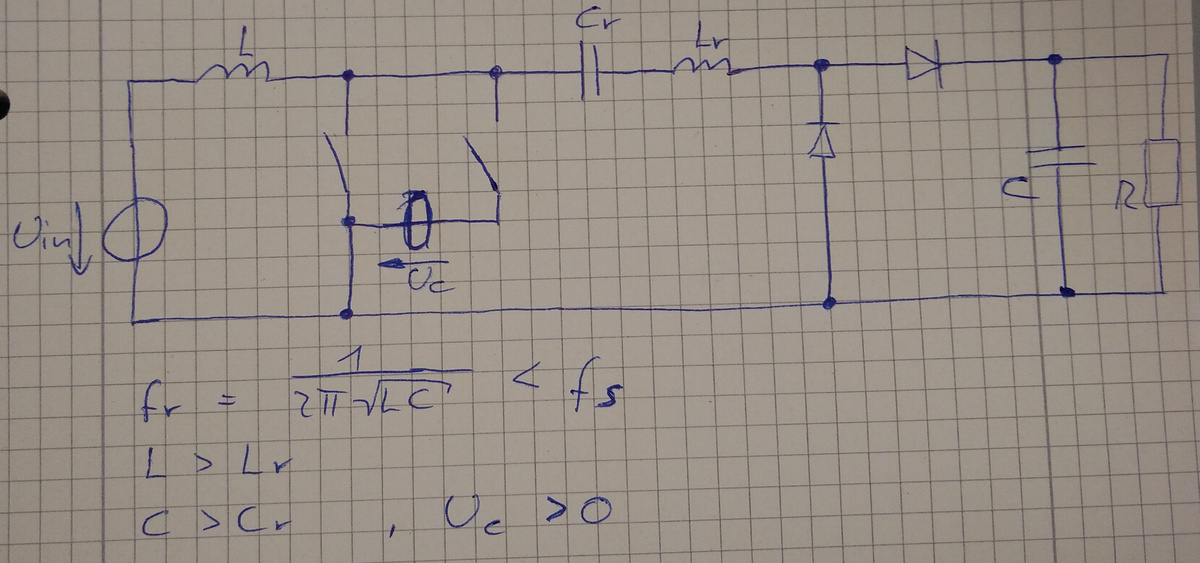 L
Cr
Lr
Uin
Uc
C
R
fr = 1 / 2π √LC < fs
L > Lr
C > Cr , Uc > 0